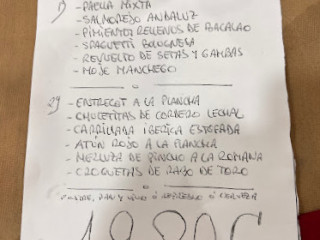 1) - PAELLA MIXTA
- SALMOREJO ANDALUZ
- PIMIENTOS RELLENOS DE BACALAO
- SPAGUETTI BOLOGNESA
- REVUELTO DE SETAS Y GAMBAS
- MOJE MANCHEGO
2) - ENTRECOT A LA PLANCHA
- CHULETITAS DE CORDERO LECHAL
- CARRILLADA IBERICA ESTOFADA
- ATÚN ROJO A LA PLANCHA
- MERLUZA DE PINCHO A LA ROMANA
- CROQUETAS DE RABO DE TORO
POSTRE, PAN Y VINO Ó REFRESCO Ó CERVEZA